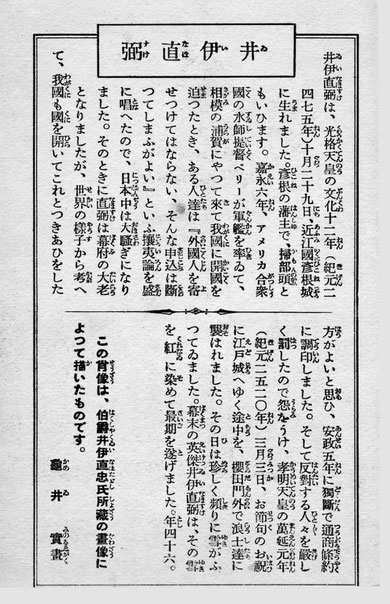 井伊直弼
井伊直弼は、光格天皇の文化十二年(紀元二
四七五年)十月二十九日、近江國彦根城
に生れました。彦根の藩主で、掃部頭と
もいひます。嘉永六年、アメリカ合衆
國の水師提督ペルリが軍艦を率ゐて、
相模の浦賀にやつて來て我國に開國を
迫つたとき、ある人達は『外國人を寄
せつけてはならない、そんな申込は斷
つてしまふがよい』といふ攘夷論を盛
に唱へたので、日本中は大騷ぎになり
ました。そのときに直弼は幕府の大老
となりましたが、世界の樣子から考へ
て、我國も國を開いてこれとつきあひをした
方がよいと思ひ、安政五年に獨斷で通商條約
に調印しました。そして反對する人々を嚴し
く罰したので怨をうけ、孝明天皇の萬延元年
(紀元二五二〇年)三月三日、お節句のお祝
に江戸城へゆく途中を、櫻田門外で浪士達に
襲はれました。その日は珍しく頻りに雪がふ
つてゐました。幕末の英傑井伊直弼は、その雪
を紅に染めて最期を遂げました。年四十六。
この肖像は、伯爵井伊直忠氏所藏の畫像に
よつて描いたものです。
龜井實畫